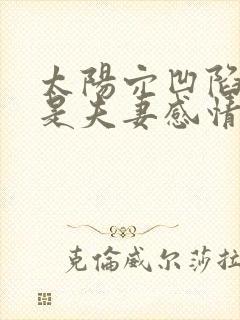 太陽穴凹陷
是夫妻感情
克倫威尔莎拉